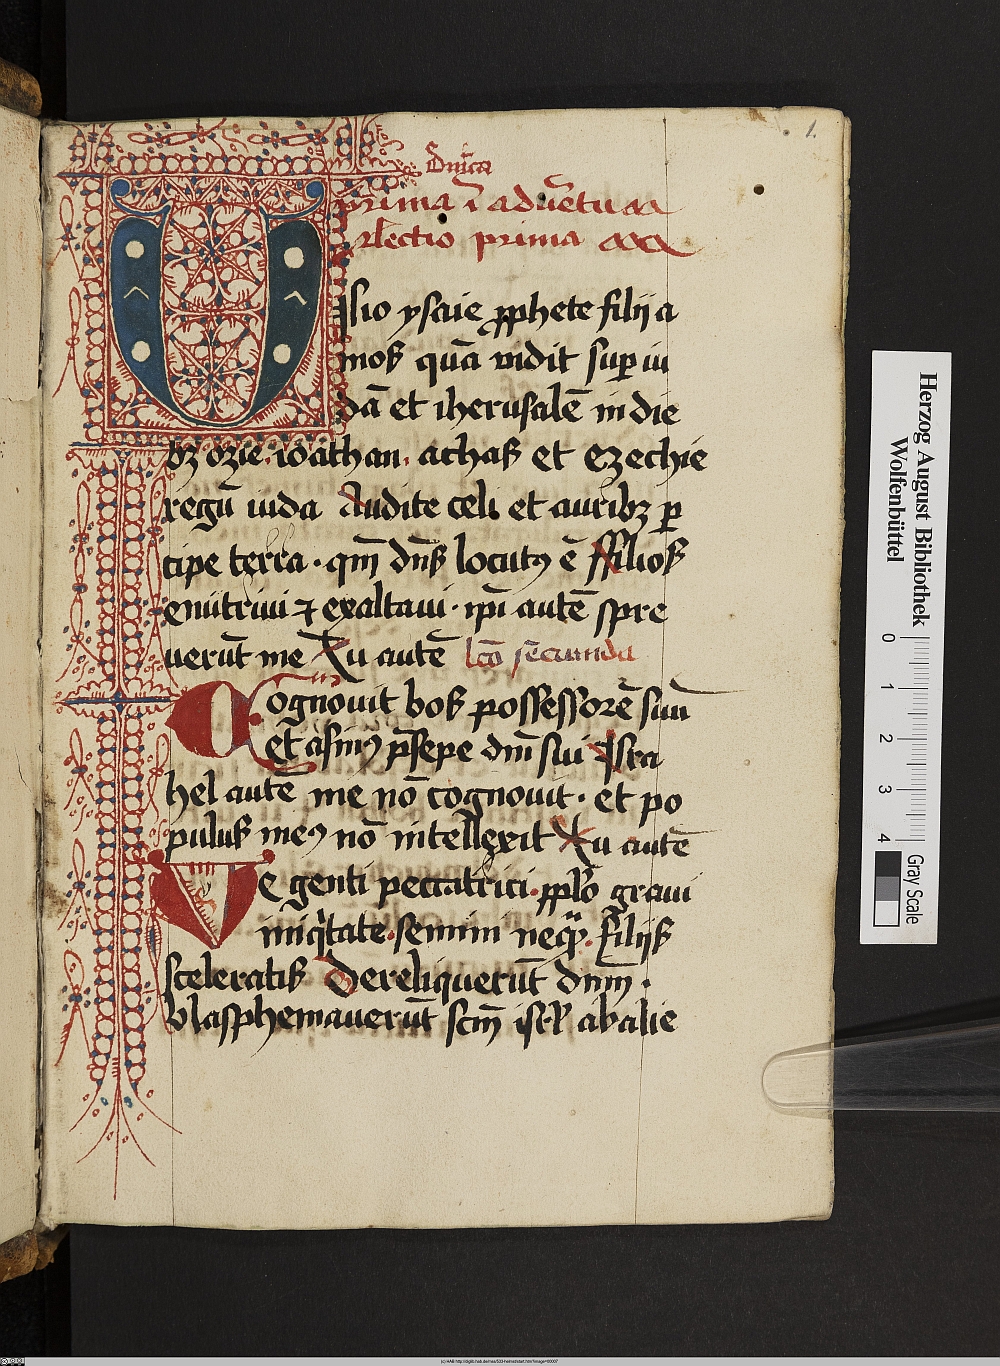 1.
Dnica
prima ī advētu
lectio prima
VIsio ysaie ꝓphete filij a
mos quā vidit sup̱ iu
dā et iherusalē in die
bꝫ ozie. ioathan. achas et ezechie
regū iuda Audite celi et auribꝫ p̱
cipe terra. qm̄ dn̄s locutꝰ ē ffilios
enūtriui ⁊ exaltaui. ip̄i autē spre
verūt me Tu autē lc̄o secunda
Cognouit bos possessorē suū
et asinꝰ p̄sepe dn̄i sui Isra
hel autē me nō cognouit. et po
pulus meꝰ nō intellexit Tu autē
Ve genti peccatrici. pplō graui
iniqͥtate. semini neqͣꝫ. filijs
sceleratis Dereliquerūt dnm̄.
blasphemauerūt scm̄ isrl̓ abalie
Herzog August Bibliothek
Wolfenbüttel
0 1 2 3 4
Gray Scale
(c) HAB http://diglib.hab.de/mss/533-helmst/start.htm?image=00007